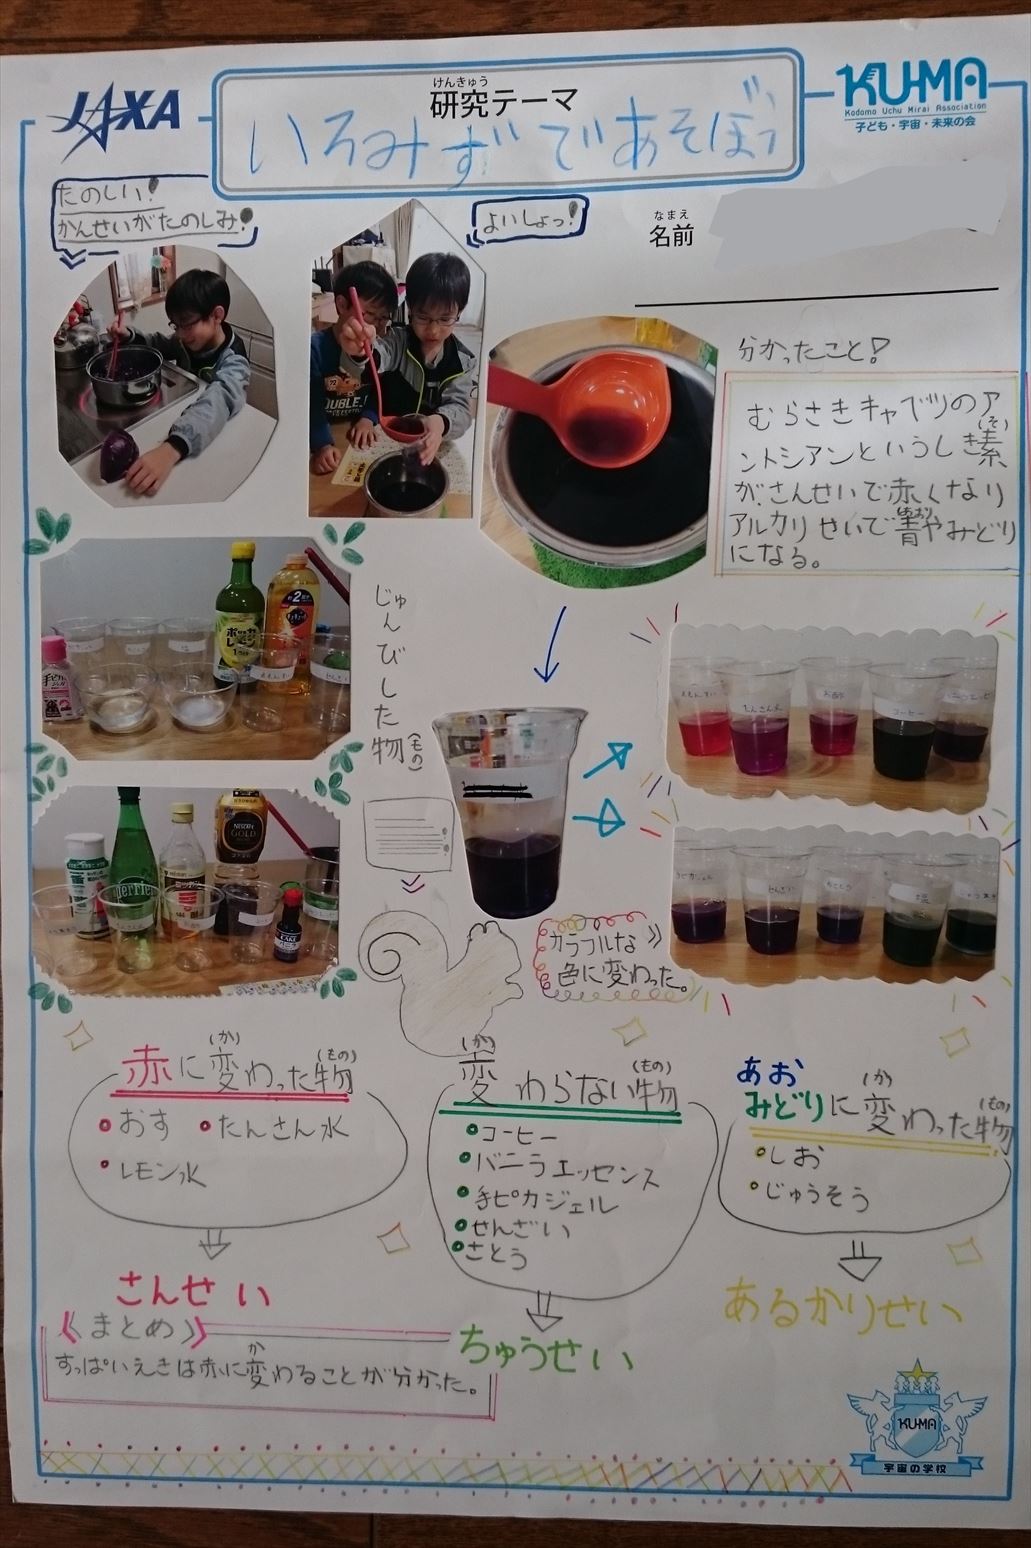 JAXA
けんきゅう
研究テーマ
いろみずであそぼう
KU-MA
Kodomo Uchu Mirai Association
子ども・宇宙・未来の会
たのしい!
かんせいがたのしみ!
よいしょっ!
なまえ
名前
分かったこと!
むらさきキャベツのア
ントシアンというしき素(そ)
が、さんせいで赤くなり
アルカリせいで青(あお)やみどり
になる。
じゅんびした物(もの)
ポッカ
レモン
手ピカ
perrier
NESCAFÉ
GOLD
お酢
たんさん水
コーヒー
せんざい
さとう
塩
カラフルな
色に変わった。
赤に変(か)わった物(もの)
おす
たんさん水
レモン水
さんせい
変(か)わらない物(もの)
コーヒー
バニラエッセンス
手ピカジェル
せんざい
さとう
ちゅうせい
あお
みどりに変(か)わった物(もの)
しお
じゅうそう
あるかりせい
《まとめ》
すっぱいえきは赤に変(か)わることが分かった。
KU-MA
宇宙の学校